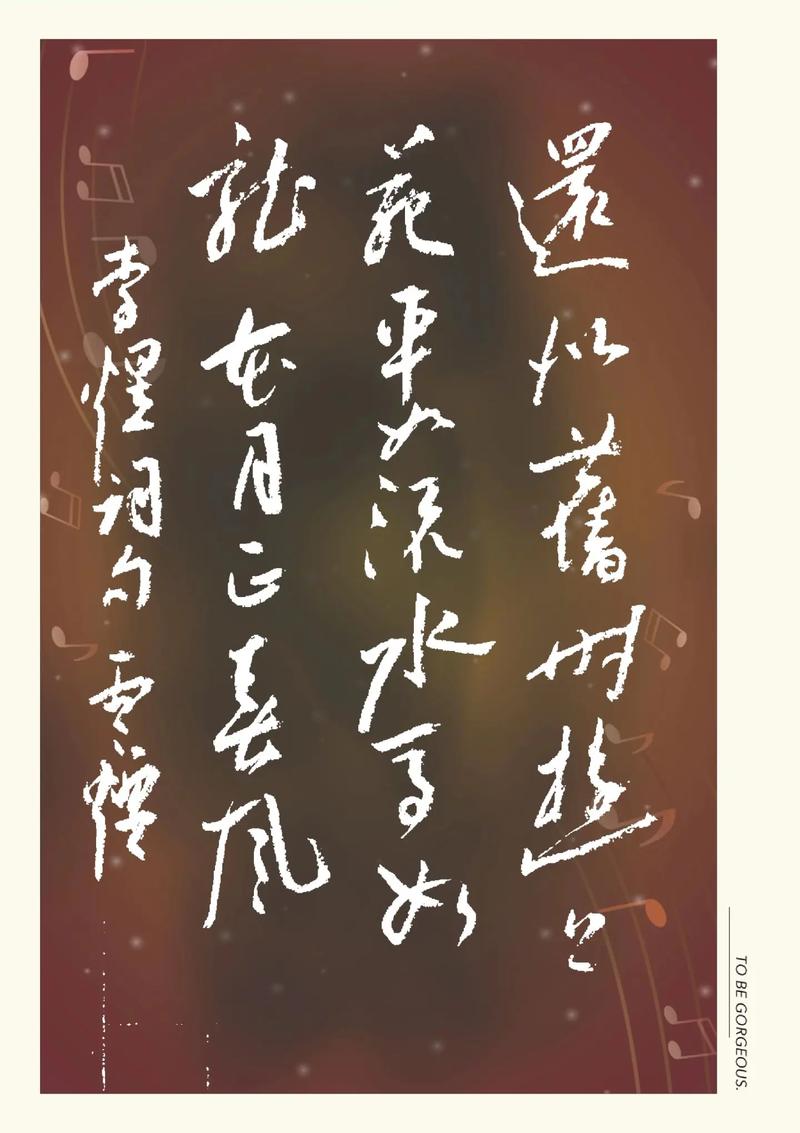 還似舊時遊上
苑車如流水馬如
龍花月正春風
李煜詞句
TO BE GORGEOUS.